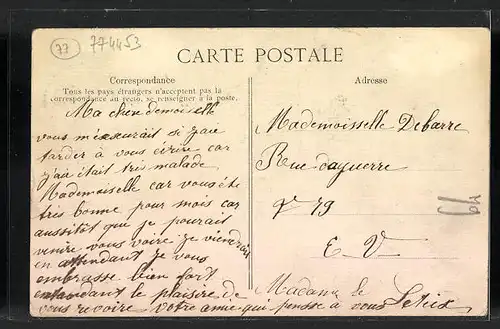 77
774453
CARTE POSTALE
Correspondance
Tous les pays étrangers n'acceptent pas la
correspondance au recto, se renseigner à la poste.
Ma chere demoiselle
vous m'exusurait si jau
tarder a vous écrire car
j'aia était tres malade
Mademoiselle car vous éte
tres bonne pour mois car
aussitôt que je pourait
venire vous voire je viendrais
en attendant je vous
embrasse bien fort
entendant le plaisire de
vous revoire votre amie qui pensse a vous
Adresse
Mademoisselle Debarre
Rue daguerre
79
E V
Madame le